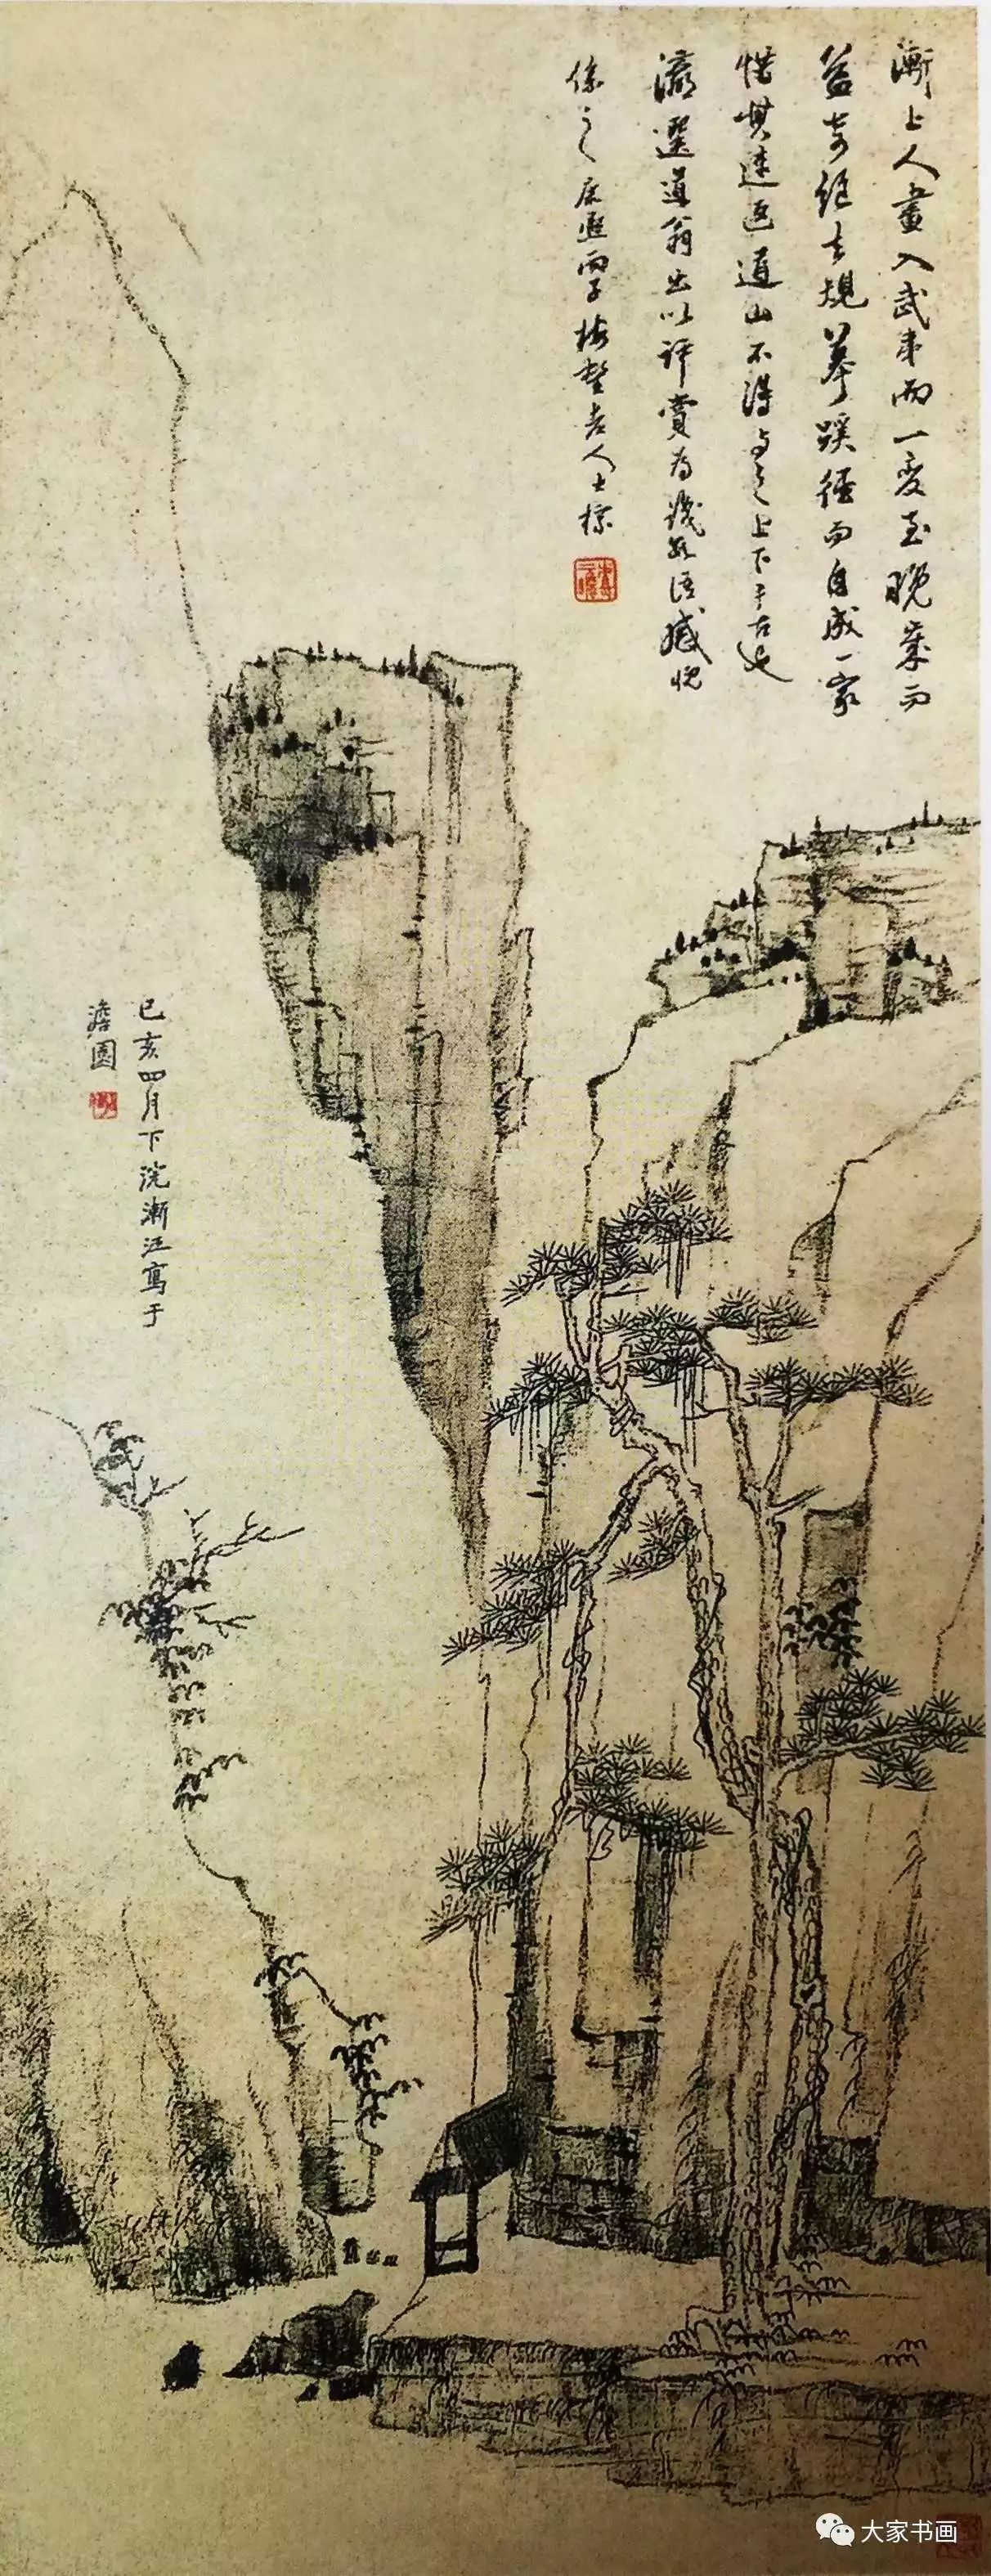 漸上人畫入武夷而一變至晚歲而
益奇絕去規摹蹊徑而自成一家
惜其遽返道山不得與之上下千古也
瀛選道翁出以評賞為識數語緘愧
係之康熙丙子梅壑老人士標
己亥四月下浣漸江寫于
澹園
大家书画